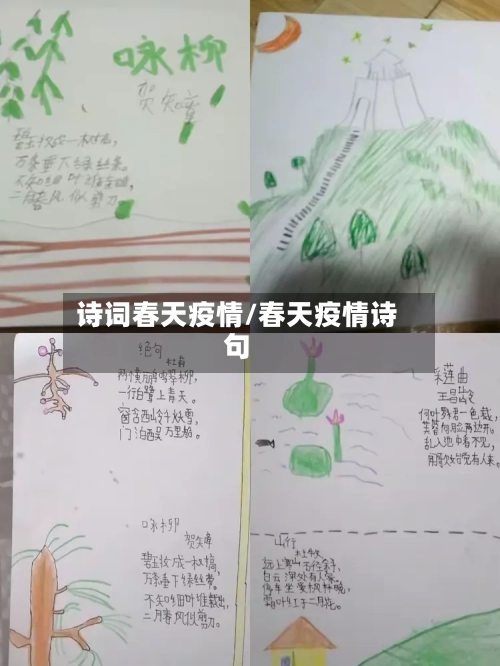 咏柳
贺知章
碧玉妆成一树高，
万条垂下绿丝条。
不知细叶谁裁出，
二月春风似剪刀
诗词春天疫情/春天疫情诗
句
绝句
杜甫
两个黄鹂鸣翠柳，
一行白鹭上青天。
窗含西岭千秋雪，
门泊西吴万里船。
咏柳
贺知章
碧玉妆成一树高，
万条垂下绿丝
不知细叶谁裁出，
二月春风似剪刀。
采莲曲
王昌龄
荷叶罗君一色裁，
芙蓉向脸两边开。
乱入池中看不见，
闻歌始觉有人来。
山行
杜牧
远上寒山石径斜，
白云深处有人家。
停车坐爱枫林晚，
霜叶红于二月花。